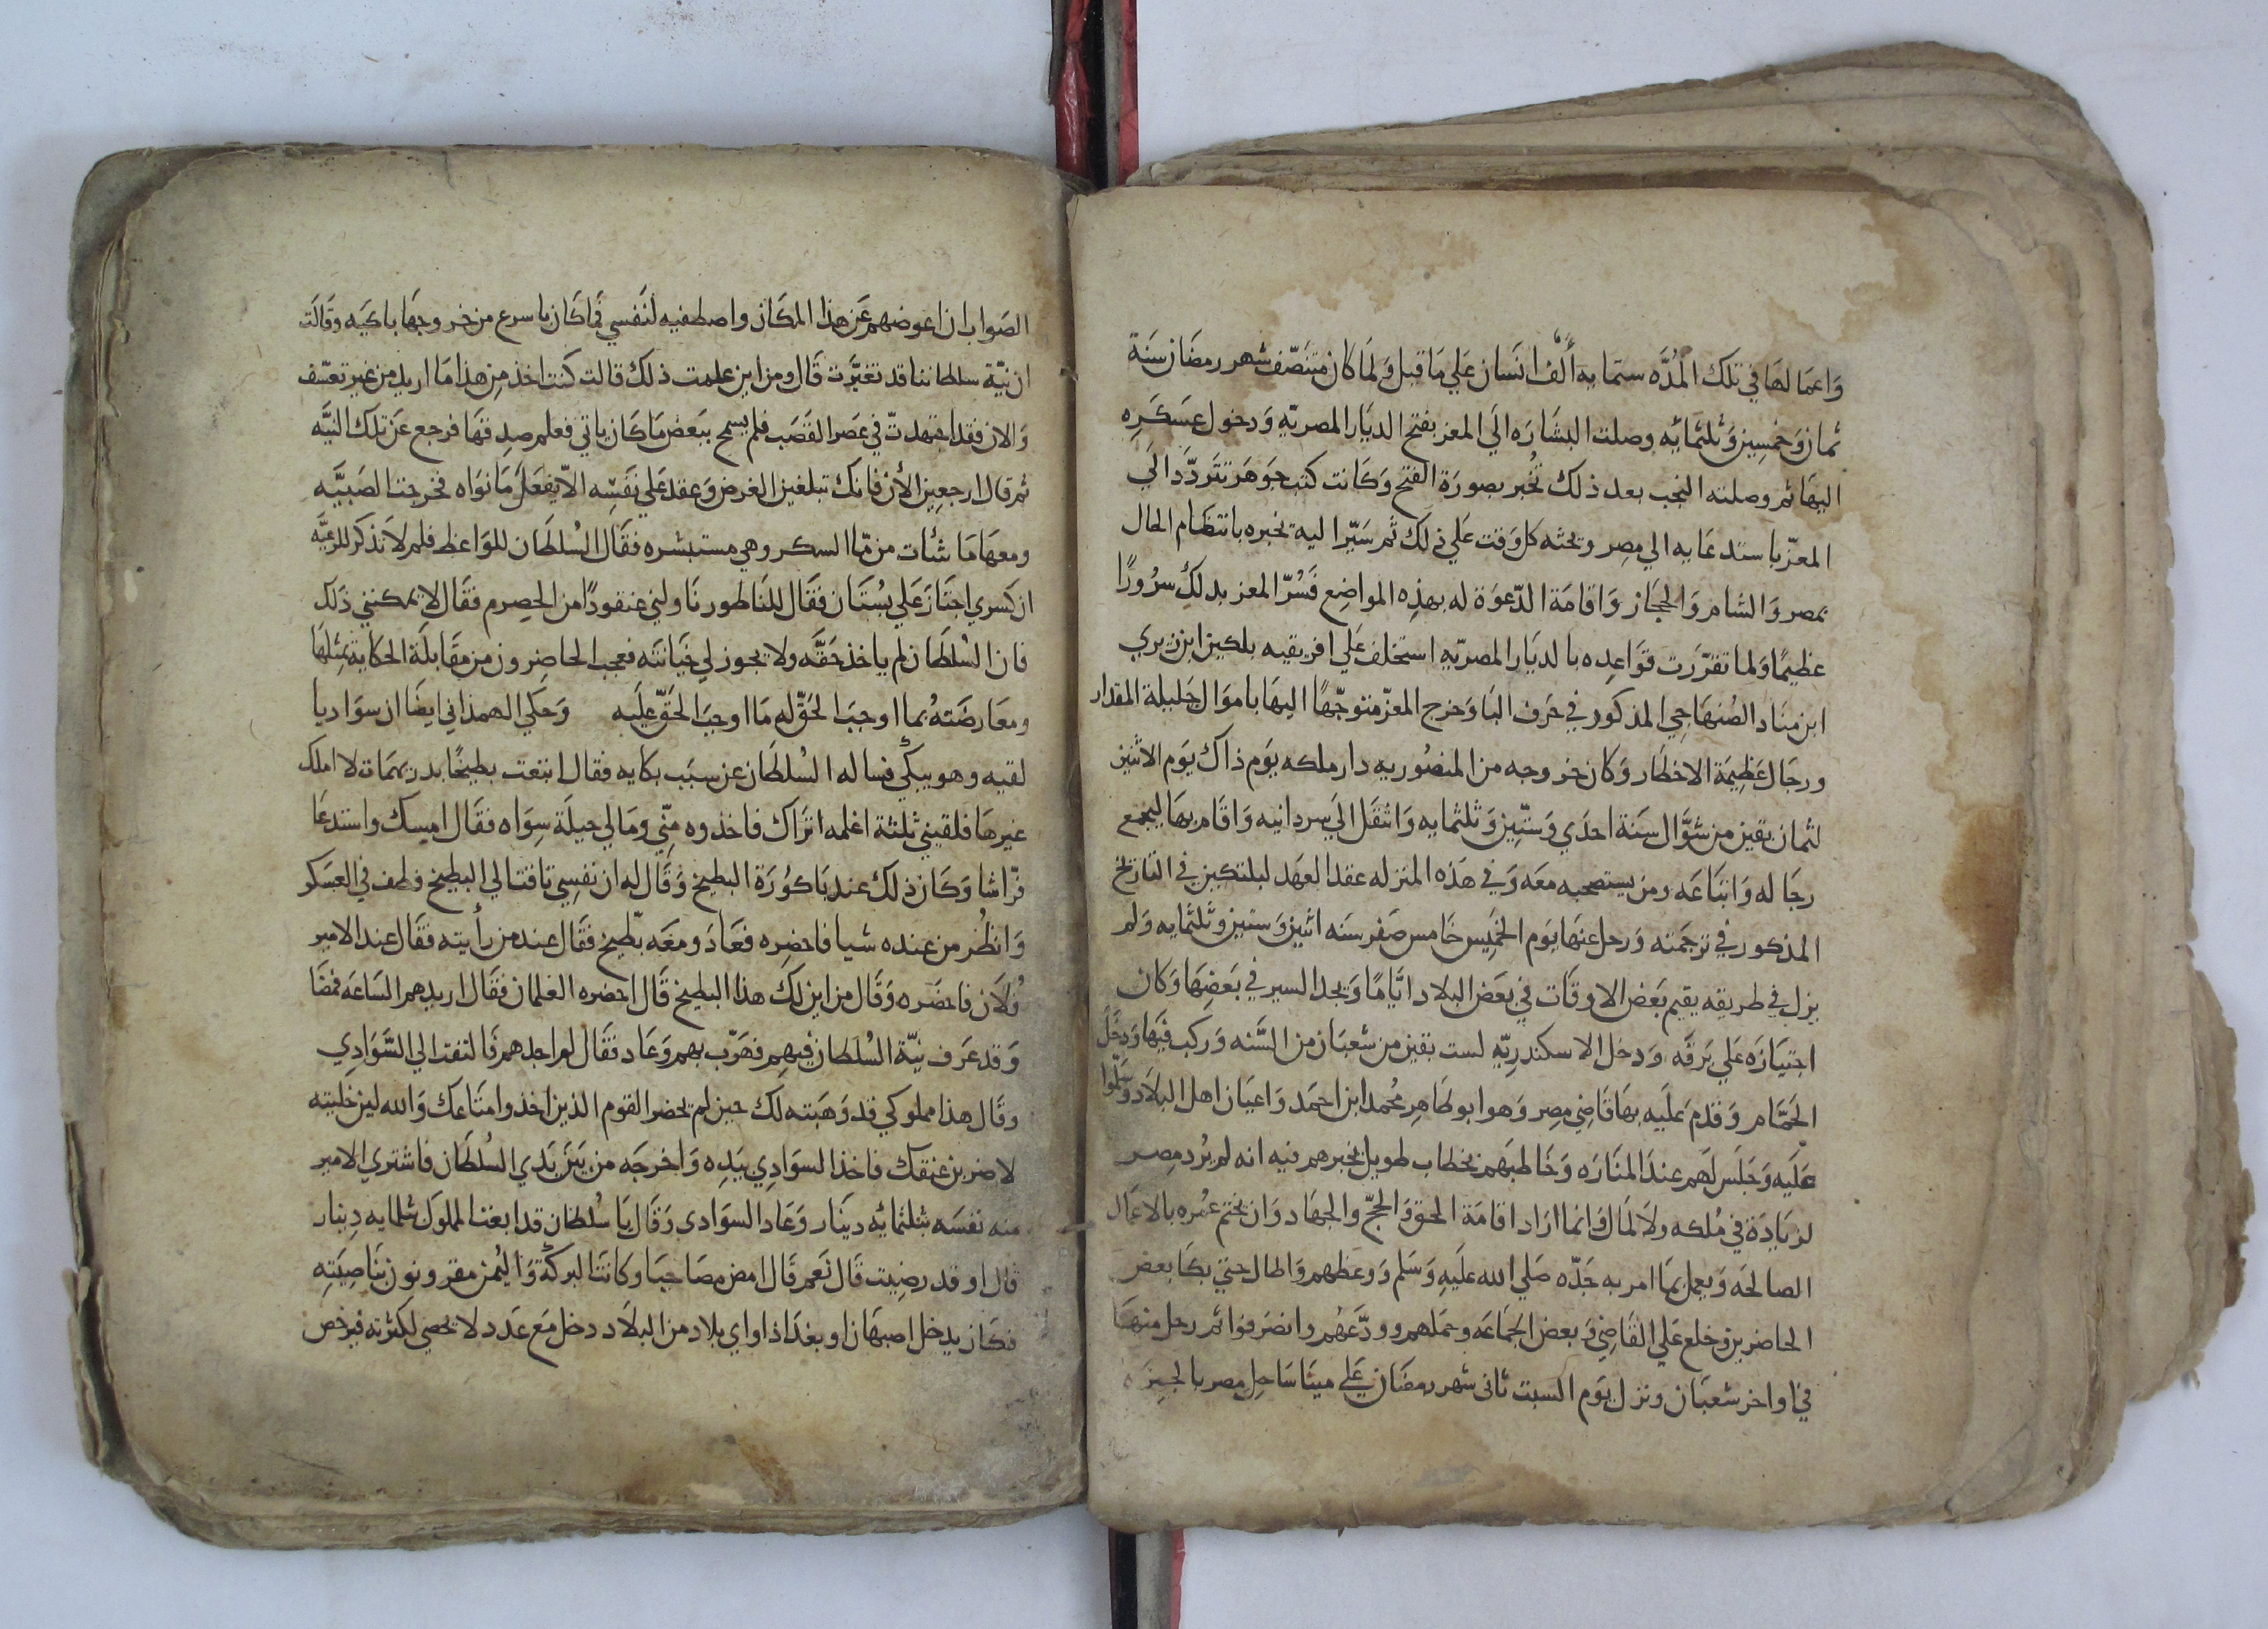 وَاعمَالهَا في تلك المُدَّه ستمايه أَلْف انسَان عَلي مَا قيل وَلمَا كان منتَصف شهر رمضَان سَنَة
ثمان وَخمسِين وَثلثمَائه وصلت البشَارَه الَي المعز بفتح الديَار المصريّه وَدخول عسَكَرِه
اليهَا ثم وصلته النجب بعد ذلك تُخبر بصورَة الفتح وَكَانت كتب جوَهَر تتَردَّد الَي
المعزّ باستدعَايه الي مِصِر وتحثه كل وَقت عَلي ذلك ثم سَيَّر اليه تخبره بانتظَام الحال
بمصر وَالشام وَالحجَاز وَاقامَة الدّعوَة له بهذِه المواضِع فَسُرّ المعز بدلك سرُورًا
عظيمًا وَلما تقرّرَت قوَاعِده بالديَار المصريّه استخلف عَلي افريقيه بلكين ابن زيري
ابن منَاد الصُنهَاجي المذكور في حَرف البَا وَخرج المعزّ متوجّهًا اليهَا باموَال جَليلة المقدار
ورجَال عَظِيمَة الاخطَار وَكان خروجه من المنصُوريه دار ملكه يوَم ذاك يوَم الاثنين
لثمان بقين من شوَّال سَنة احدَي وَستِّين وَثلثمايه وَانتقَل الَي سردانيه وَاقَام بهَا ليجتمع
رجَاله وَاتبَاعَه ومن يستصحبه معَه وَفي هَذه المنزله عقد العهَد لبلتكين في التاريخ
المذكور في ترجمَته وَرحل عنهَا يوَم الخَمِيس خَامس صَفر سنَه اثنين وَستين وَثلثمايه وَلم
يزل في طريقه يقيم بَعَض الاوقَات في بعَض البلاد ايَّامًا وَيجد السير في بَعَضِهَا وَكان
اجتيَازَه عَلي بَرقَه وَدخل الاسكندريّه لست بقين من شعبَان من السَّنه وَركب فيَها وَدخَل
الحَمَّام وَقدمَ عَليَه بهَا قَاضي مِصِر وَهوا بوطَاهِر مُحمد ابن احَمد وَاعيَان اهل البلَاد وَسَلّموا
عَليَه وَجَلَس لَهم عند المنَارَه وَخَاطبَهم بخطاب طويل يخبرهم فيه انه لم يُرد مِصِر
لزيَادَة في مُلكه ولَا لمَال وَانما ارَاد اقامَة الحق وَالحجّ وَالجهَاد وَان يختم عمُره بالاعمَال
الصالحَه وَيعمل بمَا امر به جَدّه صَلي الله علَيهِ وَسَلم وَوعَظهم وَاطال حتي بكَا بعض
الحاضرين وخلع عَلي القَاضِي وَبعض الجمَاعَه وحمَلهم وودَّعَهُم وانصَرفوا ثم رحل منهَا
في اواخر شعبَان ونزل يوَم السبت ثاني شهر رمضَان عَلي مينَا سَاحِل مصر بالجيزَه
الصَواب ان اعوضهم عَن هذا المكَان واصطفيه لنَفسي فمَا كَان باسرع من خروجهَا باكيَه وقَالَت
ان نيّة سلطاننا قد تغيَّرَت قَال ومن اين علمت ذلك قالت كنت اخذ مِن هذا مَا اريد من غير تعسّف
وَالان فقد اجتهدتّ في عَصَر القصَب فلم يسمح ببَعض مَا كَان ياتي فعلم صدِقهَا فرجع عَن تلك النيَّه
ثم قال ارجعين الأن فانك تبلغين الغرض وَعقد عَلي نفَسِه الّا يفعَل مَا نوَاه فخرجت الصَبيَّه
ومعهَا مَا شئات من مّا السكر وهي مستبشره فقَال السُلطَان للوَاعظ فلم لَا تذكَر للرعيَّه
ان كسري اجتَازَ عَلي بُستَان فقَال للنَاطور نَاولني عنقودًا من الحِصِرم فقَال لا يمكنني ذَلك
فان السُلطَان لم ياخذ حَقَّه ولا يجوز لي خيَانتَه فعجب الحاضِرون من مقَابلَة الحكاية بمثِلهَا
ومعَارضَتهُ بما اوجبَ الحَقّ له مَا اوجَبَ الحَقّ عليَه وَحكي الهمذاني ايضَا ان سوَاديا
لقيه وهو يبكَي فساله السُلطَان عن سبَب بكايه فقال ابتعت بطيخًا بدريهمَات لا املك
غيرهَا فلقيني ثلثة اغلمه اترَاك فاخذوه منِّي وَمَالي حيلَة سِوَاه فقَال امِسِك واستدعَا
فرّاشا وَكَان ذلك عند بَاكوُرَة البطيخ وَقَال له ان نفِسِي تاقت الي البطيخ فطف في العَسكر
وَانظُر من عنده شيا فاحضِره فعَادَ ومعَه بطّيخ فقَال عند من رأيته فقَال عند الامير
فُلَان فاحضَره وَقَال من اين لك هذا البطيخ قَال احضره الغلمان فقَال اريدهم السَاعَه فمضَا
وَقد عَرف نيّة السُلطان فيهِم فهَرّب بهم وَعَاد فقَال لم اجدهم فَالتفت الي السَّوَادِي
وقَال هذا مملوكي قد وَهَبته لك حين لم يحضر القوم الذين اخذوا متَاعك وَالله لين خليته
لاضربن عنقك فاخذ السوَادِي بيَدِه وَاخرجَه من بَيَن يَدي السُلطَان فاشتري الامير
منه نفسَه بثلثمائه دينَار وَعَاد السوَادي وَقَال يَا سُلطان قد ابعت المملوك بثلثمايه دِينار
قال او قد رضِيت قَال نَعَم قَال امض مصَاحبَا وكانت البركَة وَاليُمن مقرونون بنَاصِيَتِه
فكَان يدخل اصبهَان او بغدَاذ او اي بلاد من البلَاد دخل مَع عَدَد لا يحصي لكثرته فيرخص